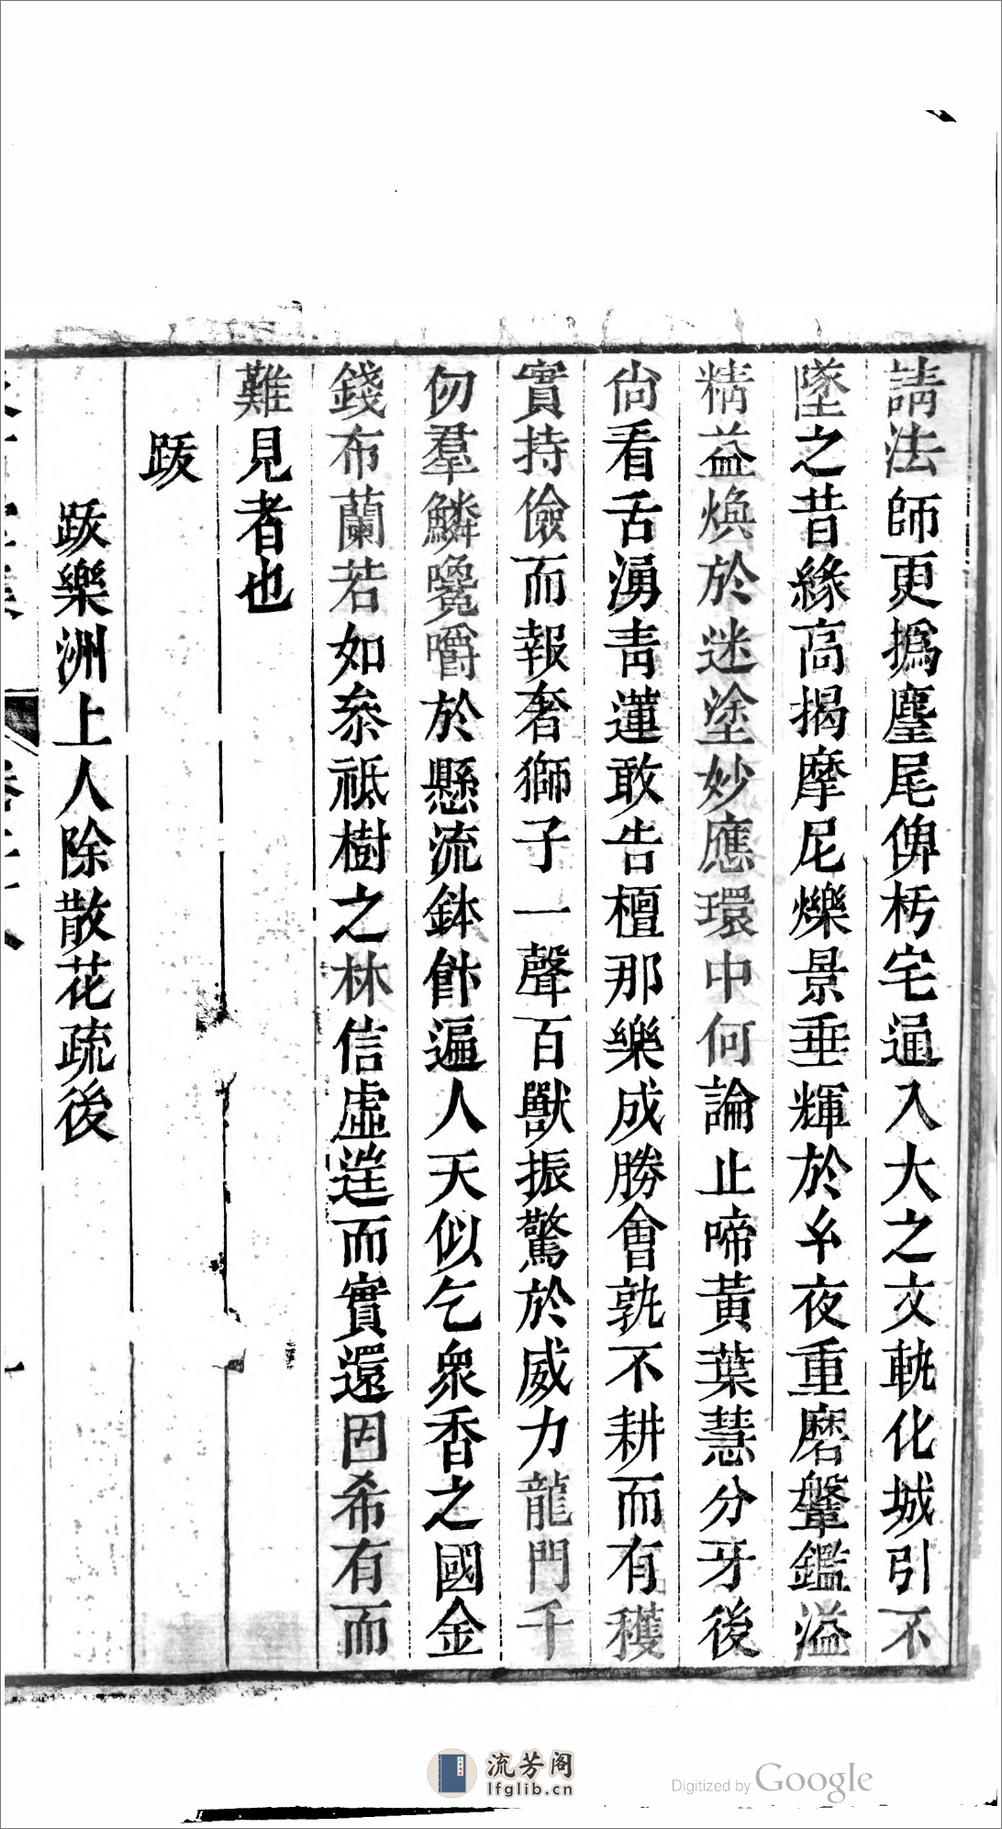 請法師更撝麈尾俾朽宅通入大之文軌化城引不
墜之昔緣高揭摩尼爍景垂輝於㓜夜重磨鞶鑑溢
精益煥於迷塗妙應環中何論止啼黃葉慧分牙後
尚看舌湧青蓮敢告檀那樂成勝會孰不耕而有穫
實持儉而報奢獅子一聲百獸振驚於威力龍門千
仞羣鱗嚵嚼於懸流鉢飰遍人天似乞衆香之國金
錢布蘭若如叅祗樹之林信虛逆而實還因希有而
難見者也
跋
跋樂洲上人除散花疏後
卷二十八
一
流芳阁
lfglib.cn
Digitized by Google